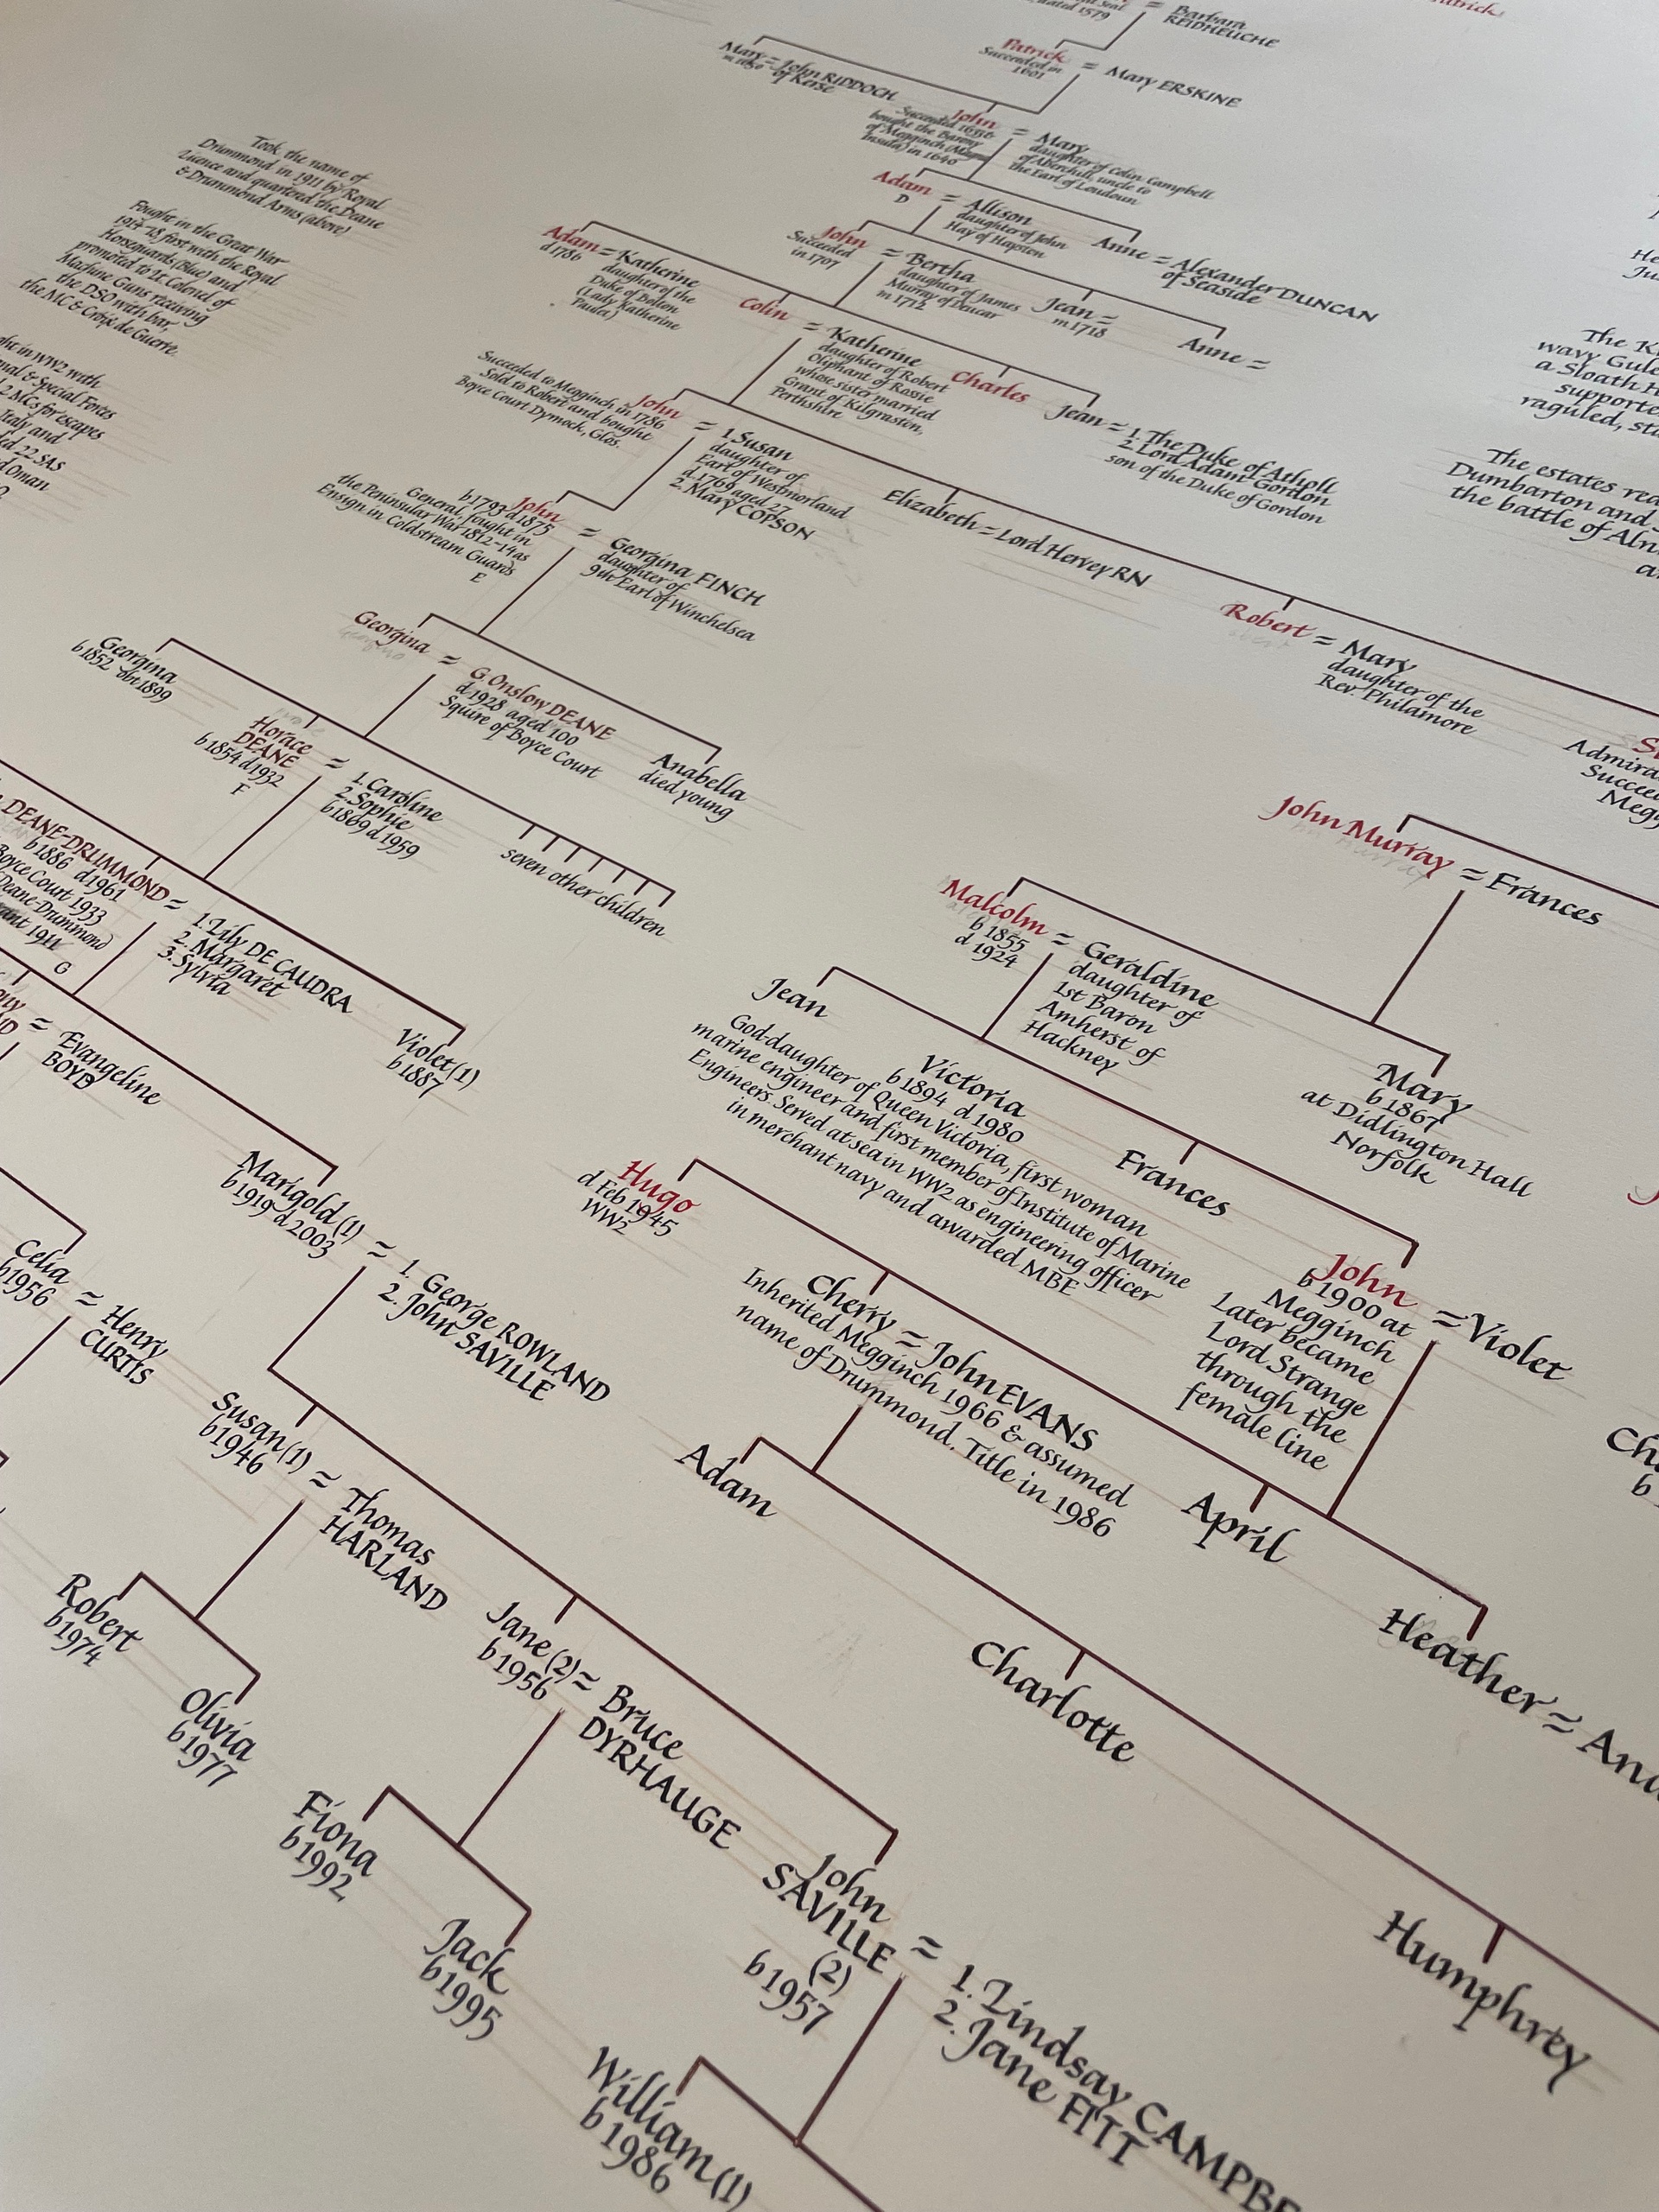 dated 1579
=
Barbara
REIDHEUCHE
Patrick
Succeeded in
1601
= Mary ERSKINE
Mary =
m.1650
John RIDDOCH
of Kerse
John
bought the Barony
of Megginch
Insula) in 1640
=
Mary
daughter of Colin Campbell
of Aberuchill, uncle to
the Earl of Loudoun
Adam
D
=
Allison
daughter of John
Hay of Hapston
Anne = Alexander DUNCAN
of Seaside
Took the name of
Drummond in 1911 by Royal
Licence and quartered the Deane
& Drummond Arms (above)
Fought in the Great War
1914-18 first with the Royal
Horseguards (Blue) and
promoted to Lt. Colonel of
Machine Guns receiving
the DSO with bar,
the MC & Croix de Guerre.
in WW2 with
& Special Forces
2 MCs for escapes
Italy and
22 SAS
Oman
Adam =
d 1786
Katherine
daughter of the
Duke of Bolton
(Lady Katherine
Paulet)
John
Succeeded
in 1707
=
Bertha
daughter of James
Murray of Deucar
m 1712
Jean =
m 1718
Anne =
Colin
=
Katherine
daughter of Robert
Oliphant of Rossie
whose sister married
Grant of Kilgraston,
Perthshire
Charles
Jean =
1. The Duke of Atholl
2. Lord Adam Gordon
son of the Duke of Gordon
The K
wavy Gule
a Sloath H
supporte
raguled, sta
The estates
Dumbarton and
the battle of Aln
Succeeded to Megginch in 1786
Sold to Robert and bought
Boyce Court Dymock, Glos.
John
=
1. Susan
daughter of
Earl of Westmorland
d. 1769 aged 27
2. Mary COPSON
Elizabeth = Lord Hervey RN
Robert =
Mary
daughter of the
Rev. Philamore
John
b 1793 d 1875
General, fought in
the Peninsular War 1812-14 as
Ensign in Coldstream Guards
E
=
Georgina FINCH
daughter of
9th Earl of Winchelsea
Georgina
=
G. Onslow DEANE
d 1928 aged 100
Squire of Boyce Court
Anabella
died young
Georgina
b 1852 obt 1899
Horace
DEANE
b 1854 d 1932
F
=
1. Caroline
2. Sophie
b 1869 d 1959
seven other children
Admira
Succee
Megg
John Murray
=
Frances
Malcolm
b 1855
d 1924
=
Geraldine
daughter of
1st Baron
Amherst of
Hackney
Mary
b 1867
at Didlington Hall
Norfolk
DEANE-DRUMMOND =
b 1886 d 1961
Boyce Court 1933
Deane-Drummond
1911
G
1. Lily DE CAUDRA
2. Margaret
3. Sylvia
Violet (1)
b 1887
=
Evangeline
BOYD
Jean
Victoria
b 1894 d 1980
God-daughter of Queen Victoria, first woman
marine engineer and first member of Institute of Marine
Engineers. Served at sea in WW2 as engineering officer
in merchant navy and awarded MBE
Frances
John
b 1900 at
Megginch
Later became
Lord Strange
through the
female line
=
Violet
Marigold (1)
b 1919 d 2003
=
1. George ROWLAND
2. John SAVILLE
Hugo
d Feb 1945
WW2
Cherry = John EVANS
Inherited Megginch 1966 & assumed
name of Drummond. Title in 1986
April
Heather =
Celia
b 1956
=
Henry
CURTIS
Susan (1)
b 1946
=
Thomas
HARLAND
Adam
Charlotte
Humphrey
Robert
b 1974
Olivia
b 1977
Jane (2) =
b 1956
Bruce
DYRHAUGE
Fiona
b 1992
Jack
b 1995
John
SAVILLE
(2)
b 1957
=
1. Lindsay CAMPBE
2. Jane FITT
William (1)
b 1986